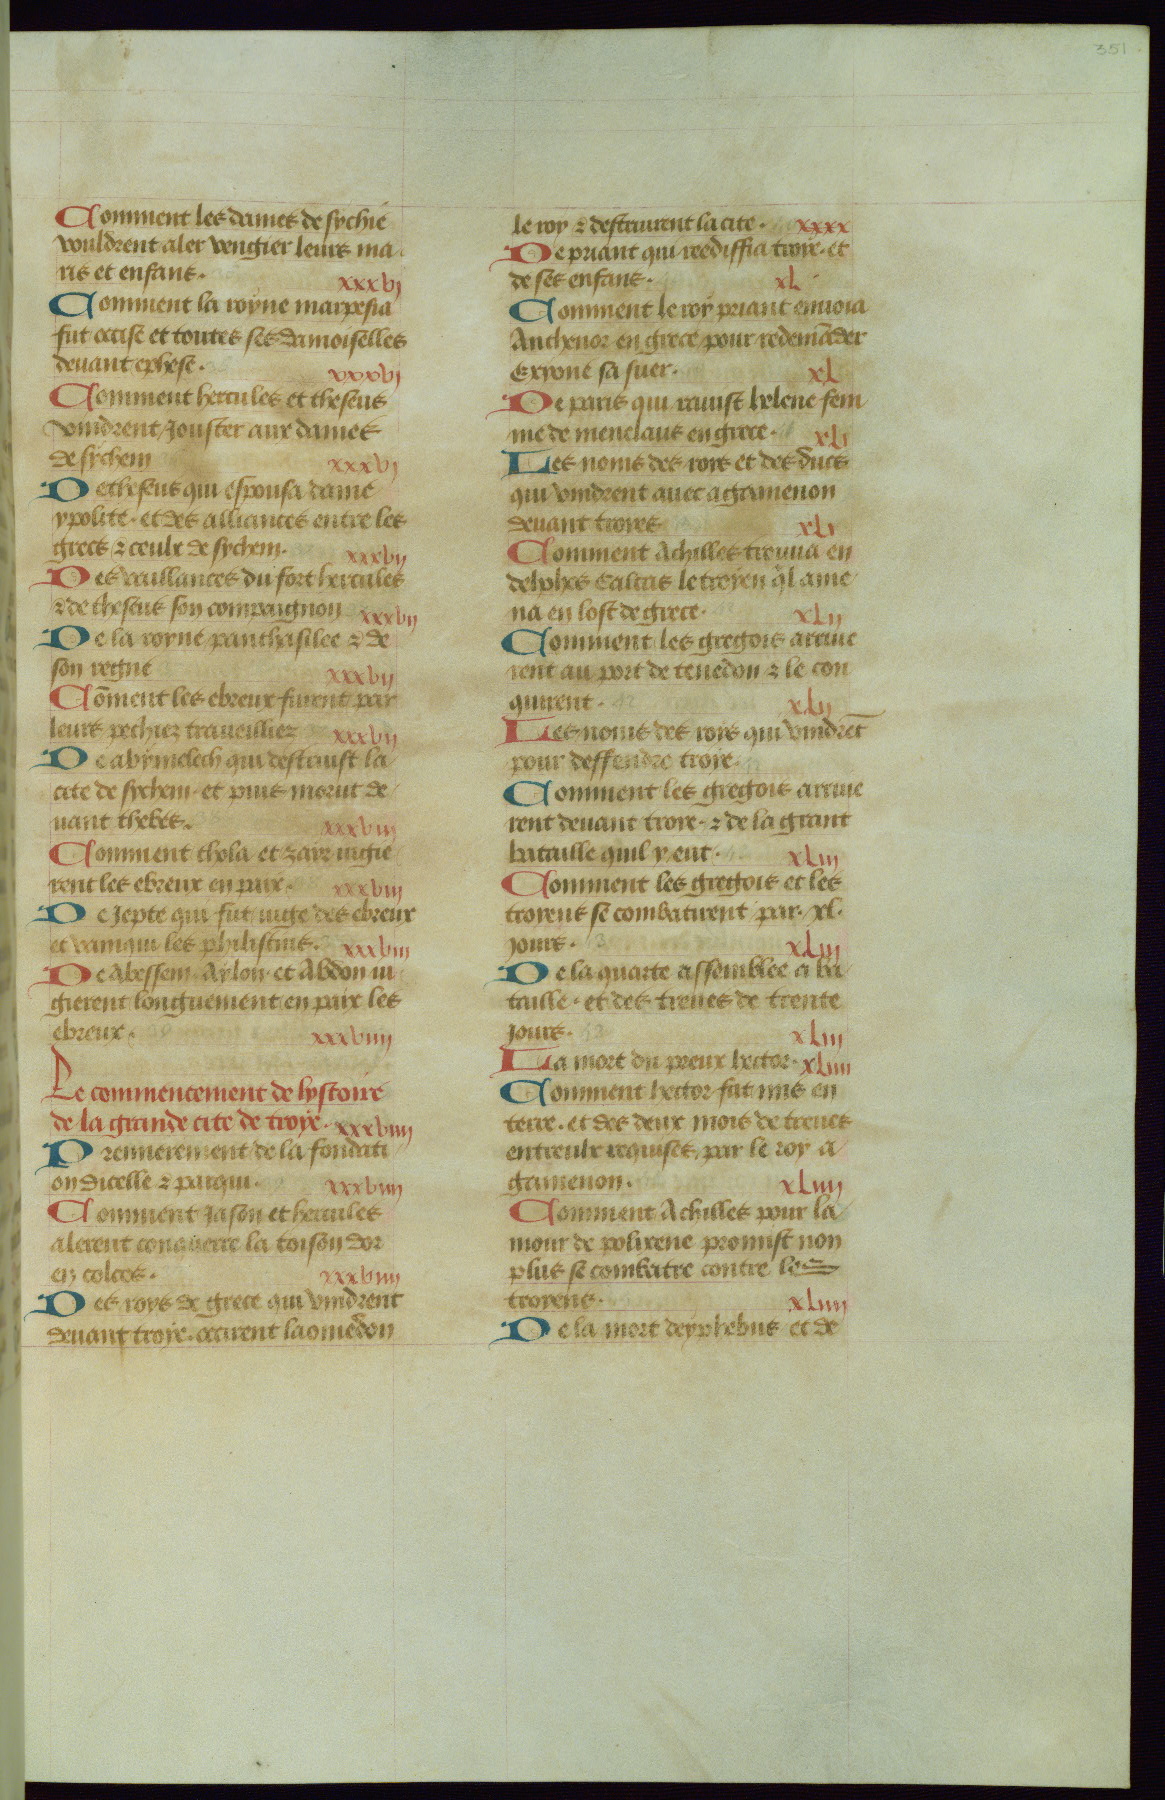 351
Comment les dames de sychie
vouldrent aler vengier leurs ma
ris et enfans. xxxvj
Comment la royne marpesia
fut occise et toutes ses damoiselles
devant ephese. xxxvj
Comment hercules et theseus
vindrent jouster aux dames
de sychem xxxvj
De theseus qui espousa dame
ypolite. et des alliances entre les
grecs & ceulx de sychem. xxxvij
Des vaillances du fort hercules
& de theseus son compaignon xxxvij
De la royne panthasilee & de
son regne xxxvij
Cōment les ebreux furent par
leurs pechiez traveilliez xxxvij
De abymelech qui destruist la
cite de sychem. et puis morut de
vant thebes. xxxviij
Comment thola et zayr jugie
rent les ebreux en paix. xxxviij
De Jepte qui fut juge des ebreux
et vainqui les philistins. xxxviij
De Abessem. Aylon. et Abdon iu
gierent longuement en paix les
ebreux. xxxviiij
Le commencement de lystoire
de la grande cite de troye. xxxviiij
Premierement de la fondati
on dicelle & par qui. xxxviiij
Comment Jason et hercules
alerent conquerre la toison dor
en colcos. xxxviiij
Des roys de grece qui vindrent
devant troye. occirent laomedon
le roy & destruirent la cite. xxxx
De priant qui reediffia troye. et
de ses enfans. xL
Comment le roy priant envoia
Anthenor en grece pour redemāder
Exione sa suer. xL
De paris qui ravist helene fem
me de menelaus en grece. xLj
Les noms des roys et des ducs
qui vindrent avec agamenon
devant troyes xLj
Comment Achilles trouva en
delphes Calcas le troyen q̄l ame
na en lost de grece. xLij
Comment les gregois arrive
rent au port de tenedon & le con
quirent. xLij
Les noms des roys qui vindrēt
pour deffendre troye.
Comment les gregois arrive
rent devant troye. & de la grant
bataille quil y eut. xLiij
Comment les gregois et les
troyens se combatirent par. xl.
jours. xLiij
De la quarte assemblee a ba
taille. et des treves de trente
jours. xLiij
La mort du preux hector. xLiiij
Comment hector fut mis en
terre. et des deux mois de treves
entreulx requises par le roy a
gamenon. xLiiij
Comment Achilles pour la
mour de polixene promist non
plus se combatre contre les
troyens. xLiiij
De la mort deyphebus et de